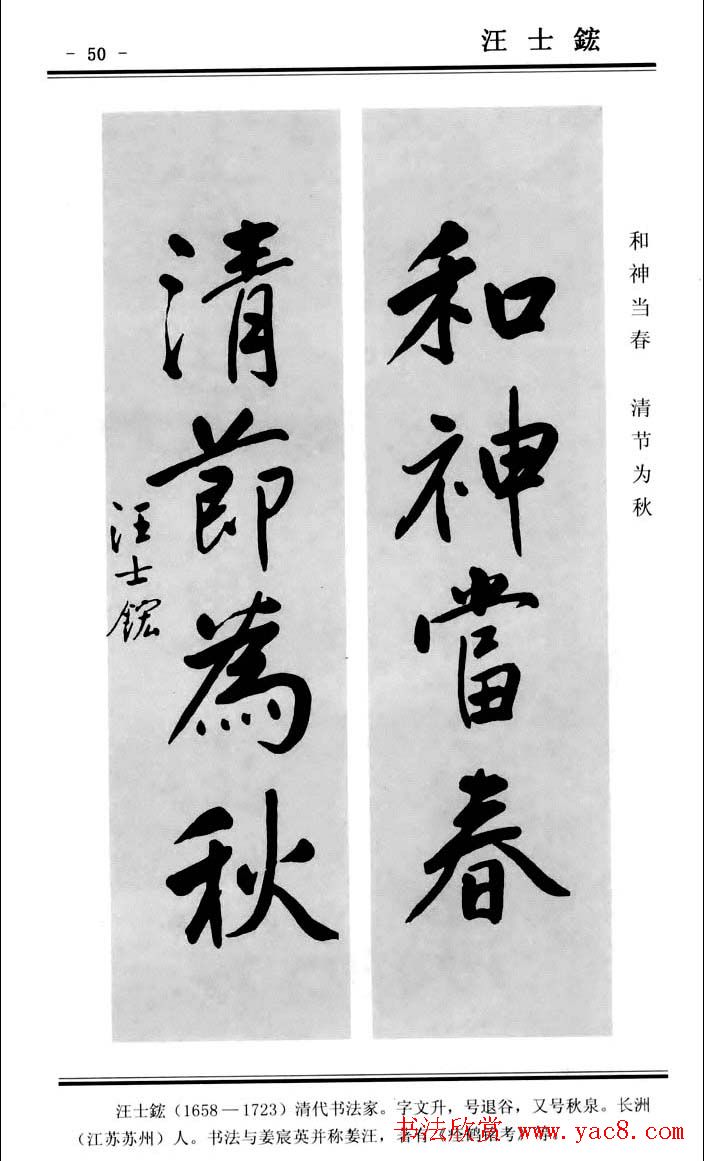 - 50 -
汪士鋐
和神當春
清節為秋
汪士鋐
和神当春 清节为秋
汪士鋐（1658—1723）清代书法家。字文升，号退谷，又号秋泉。长洲
（江苏苏州）人。书法与姜宸英并称姜汪，著有《瘗鹤铭考》等
书法欣赏 www.yac8.com